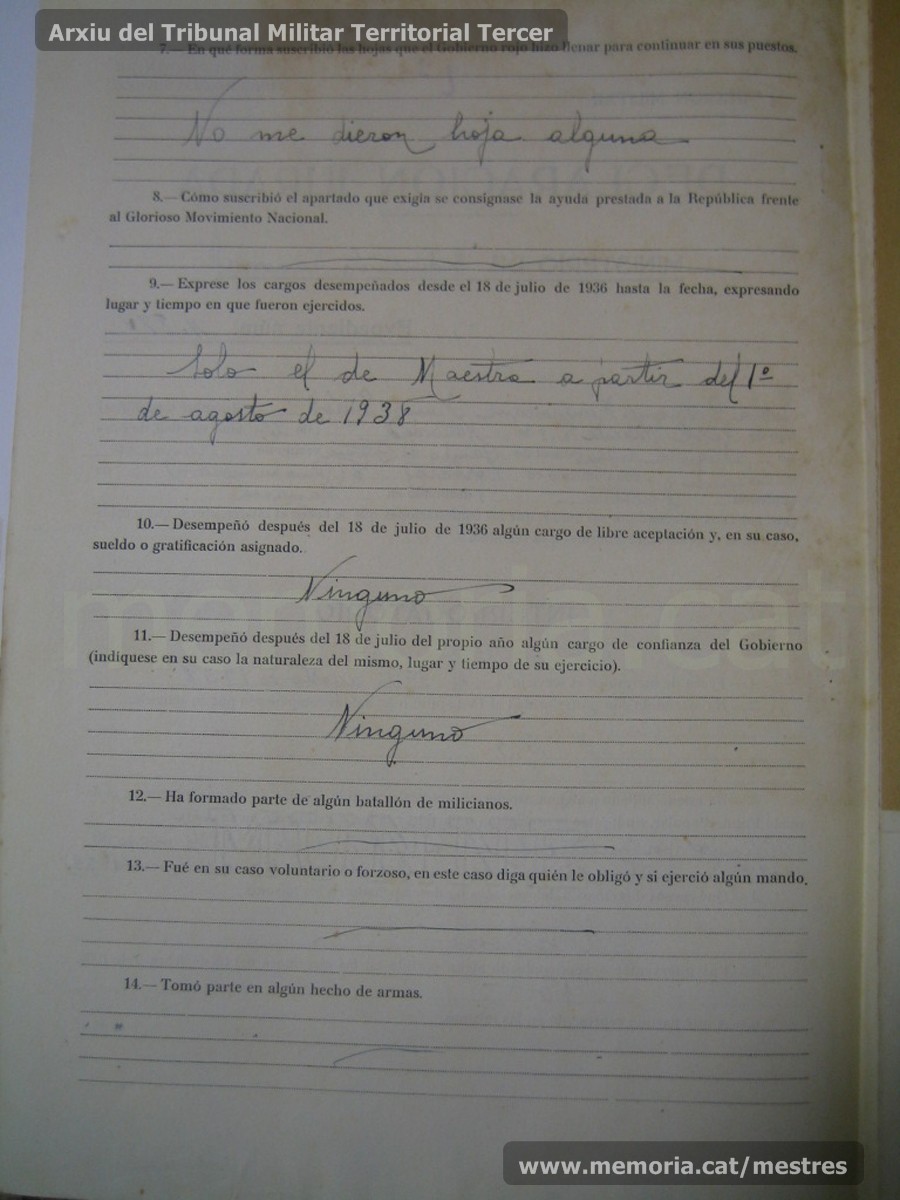 Arxiu del Tribunal Militar Territorial Tercer
7.— En qué forma suscribió las hojas que el Gobierno rojo hizo llenar para continuar en sus puestos.
No me dieron hoja alguna
8.— Cómo suscribió el apartado que exigia se consignase la ayuda prestada a la República frente
al Glorioso Movimiento Nacional.
9.— Exprese los cargos desempeñados desde el 18 de julio de 1936 hasta la fecha, expresando
lugar y tiempo en que fueron ejercidos.
Solo el de Maestra a partir del 1º
de agosto de 1938
10.— Desempeñó después del 18 de julio de 1936 algún cargo de libre aceptación y, en su caso,
sueldo o gratificación asignado.
Ninguno
memoria.cat
11.— Desempeñó después del 18 de julio del propio año algún cargo de confianza del Gobierno
(indíquese en su caso la naturaleza del mismo, lugar y tiempo de su ejercicio).
Ninguno
12.— Ha formado parte de algún batallón de milicianos.
13.— Fué en su caso voluntario o forzoso, en este caso diga quién le obligó y si ejerció algún mando.
14.— Tomó parte en algún hecho de armas.
www.memoria.cat/mestres